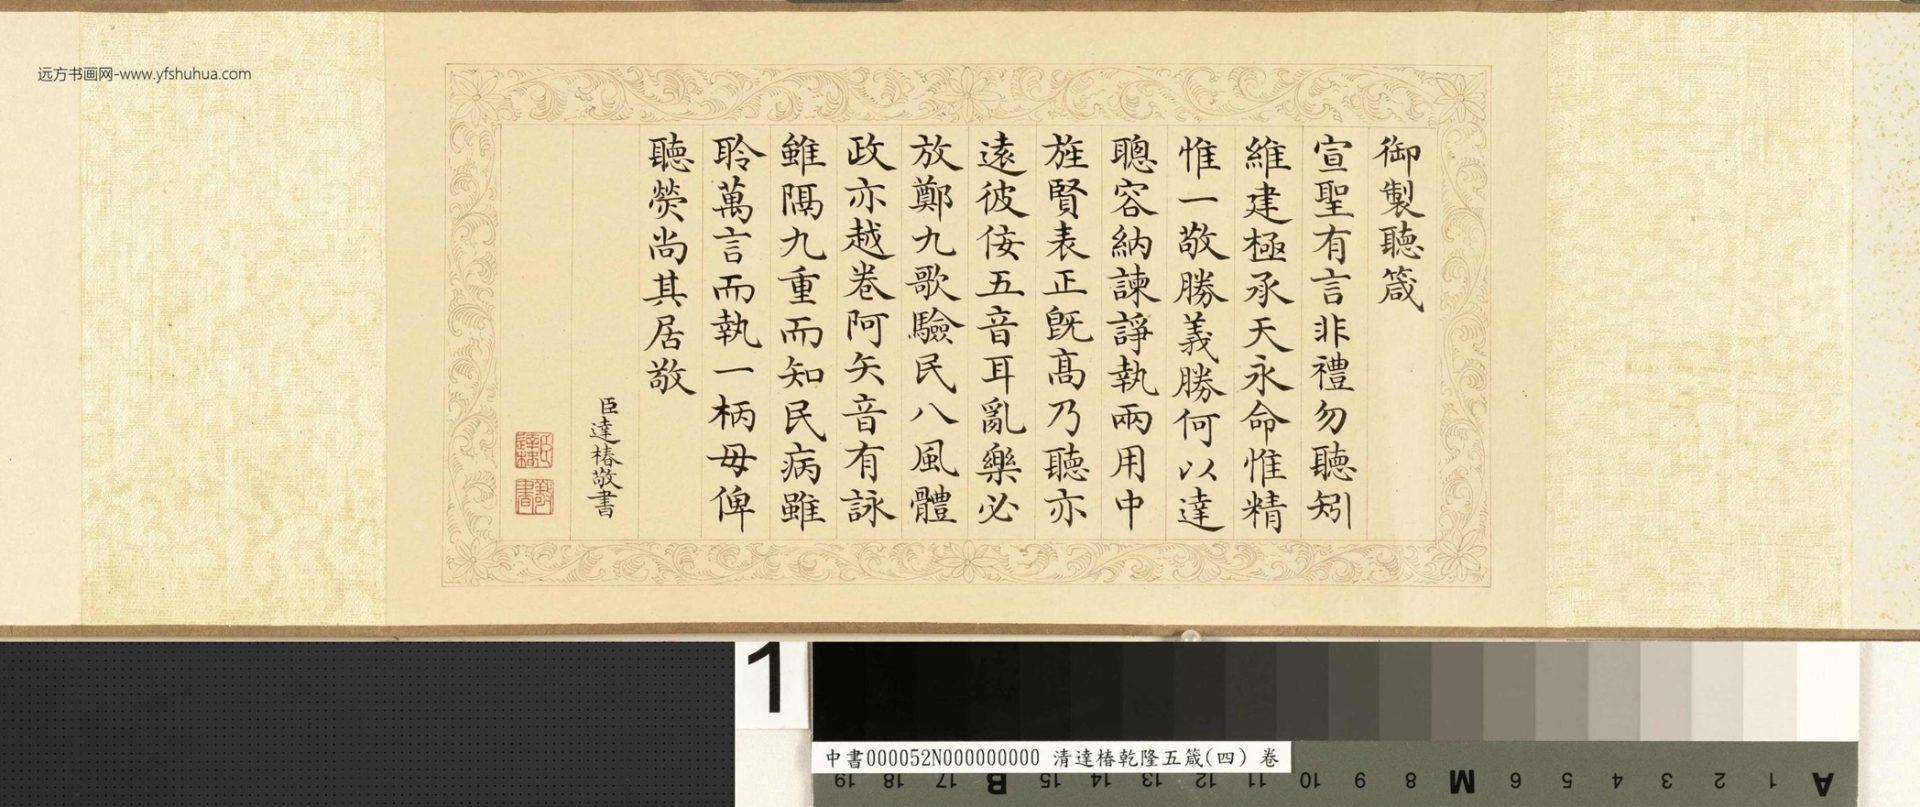 远方书画网-www.yfshuhua.com
御製聽箴
宣聖有言非禮勿聽矧
維建極承天永命惟精
惟一敬勝義勝何以達
聰容納諫諍執兩用中
旌賢表正旣高乃聽亦
遠彼佞五音耳亂樂必
放鄭九歌驗民八風體
政亦越卷阿矢音有詠
雖隔九重而知民病雖
聆萬言而執一柄毋俾
聽熒尚其居敬
臣達椿敬書
臣達椿
敬書
1
中書000052N000000000 清達椿乾隆五箴(四) 卷
A 1 2 3 4 5 6 M 8 9 10 11 12 13 14 15 B 17 18 19